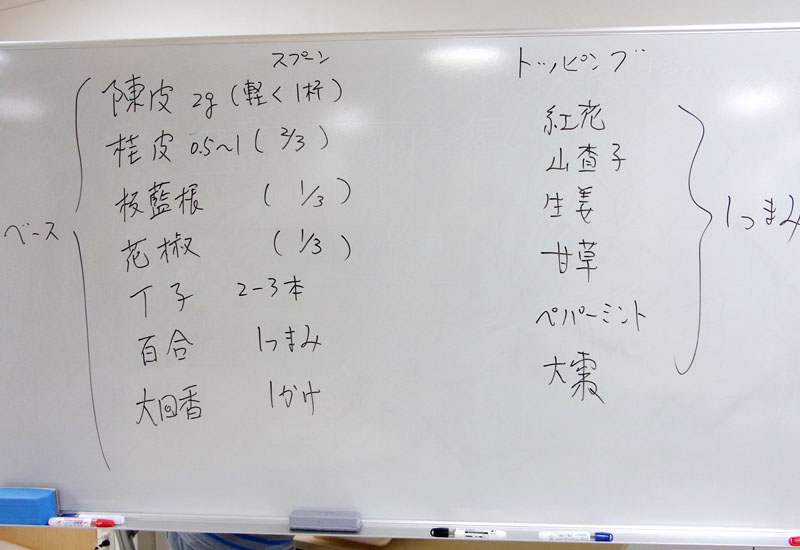 スプーン
陳皮 2g (軽く1杯)
桂皮 0.5~1 (2/3)
板藍根 (1/3)
花椒 (1/3)
丁子 2-3本
百合 1つまみ
大回香 1かけ
ベース
トッピング
紅花
山査子
生姜
甘草
ペパーミント
大棗
1つまみ